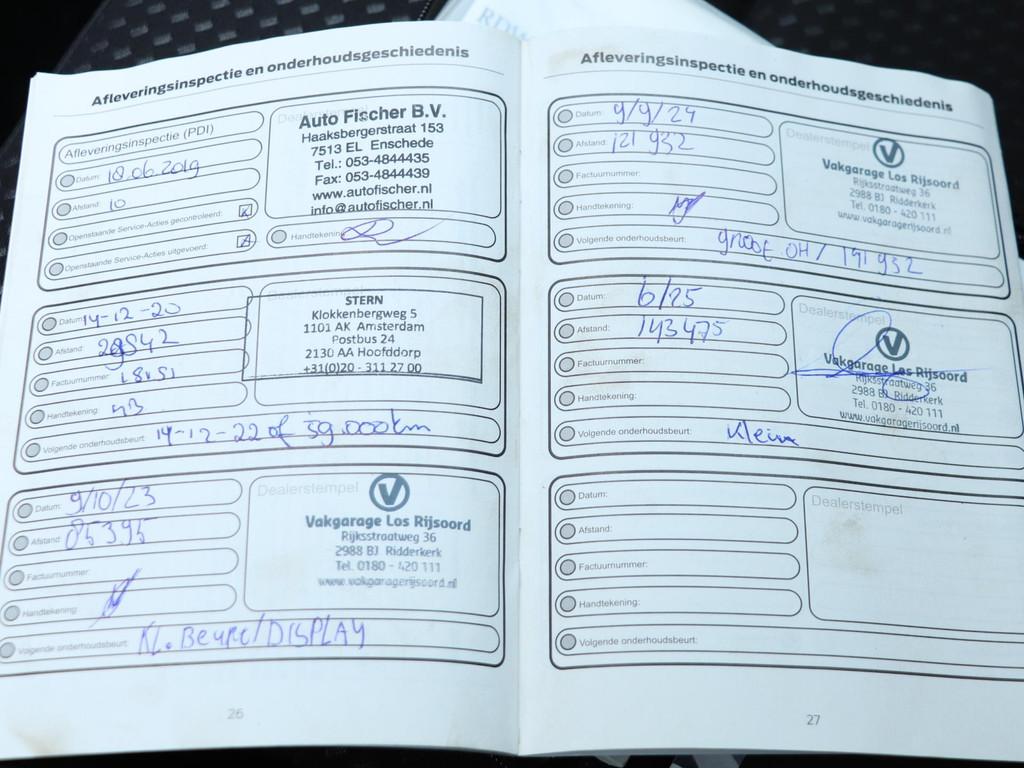 RDW
Afleveringsinspectie en onderhoudsgeschiedenis
Afleveringsinspectie (PDI)
Datum: 18.06.2019
Afstand: 10
Openstaande Service-Acties gecontroleerd:
Openstaande Service-Acties uitgevoerd:
Auto Fischer B.V.
Haaksbergerstraat 153
7513 EL Enschede
Tel.: 053-4844435
Fax: 053-4844439
www.autofischer.nl
info@autofischer.nl
Handtekening
Datum: 14-12-20
Afstand:
Factuurnummer:
Handtekening:
Volgende onderhoudsbeurt: 14-12-22 of 59.000km
Dealerstempel
STERN
Klokkenbergweg 5
1101 AK Amsterdam
Postbus 24
2130 AA Hoofddorp
+31(0)20 - 311 27 00
Datum: 9/10/23
Afstand: 85395
Factuurnummer:
Handtekening:
Volgende onderhoudsbeurt: KL. BEURT/DISPLAY
Dealerstempel
Vakgarage Los Rijsoord
Rijksstraatweg 36
2988 BJ Ridderkerk
Tel. 0180 - 420 111
www.vakgaragerijsoord.nl
26
Afleveringsinspectie en onderhoudsgeschiedenis
Datum: 9/9/24
Afstand: 121 932
Factuurnummer:
Handtekening:
Volgende onderhoudsbeurt: grote OH / 141 932
Dealerstempel
Vakgarage Los Rijsoord
Rijksstraatweg 36
2988 BJ Ridderkerk
Tel. 0180 - 420 111
www.vakgaragerijsoord.nl
Datum: 6/25
Afstand: 143475
Factuurnummer:
Handtekening:
Volgende onderhoudsbeurt: Klein
Dealerstempel
Vakgarage Los Rijsoord
Rijksstraatweg 36
2988 BJ Ridderkerk
Tel. 0180 - 420 111
www.vakgaragerijsoord.nl
Datum:
Afstand:
Factuurnummer:
Handtekening:
Volgende onderhoudsbeurt:
Dealerstempel
27